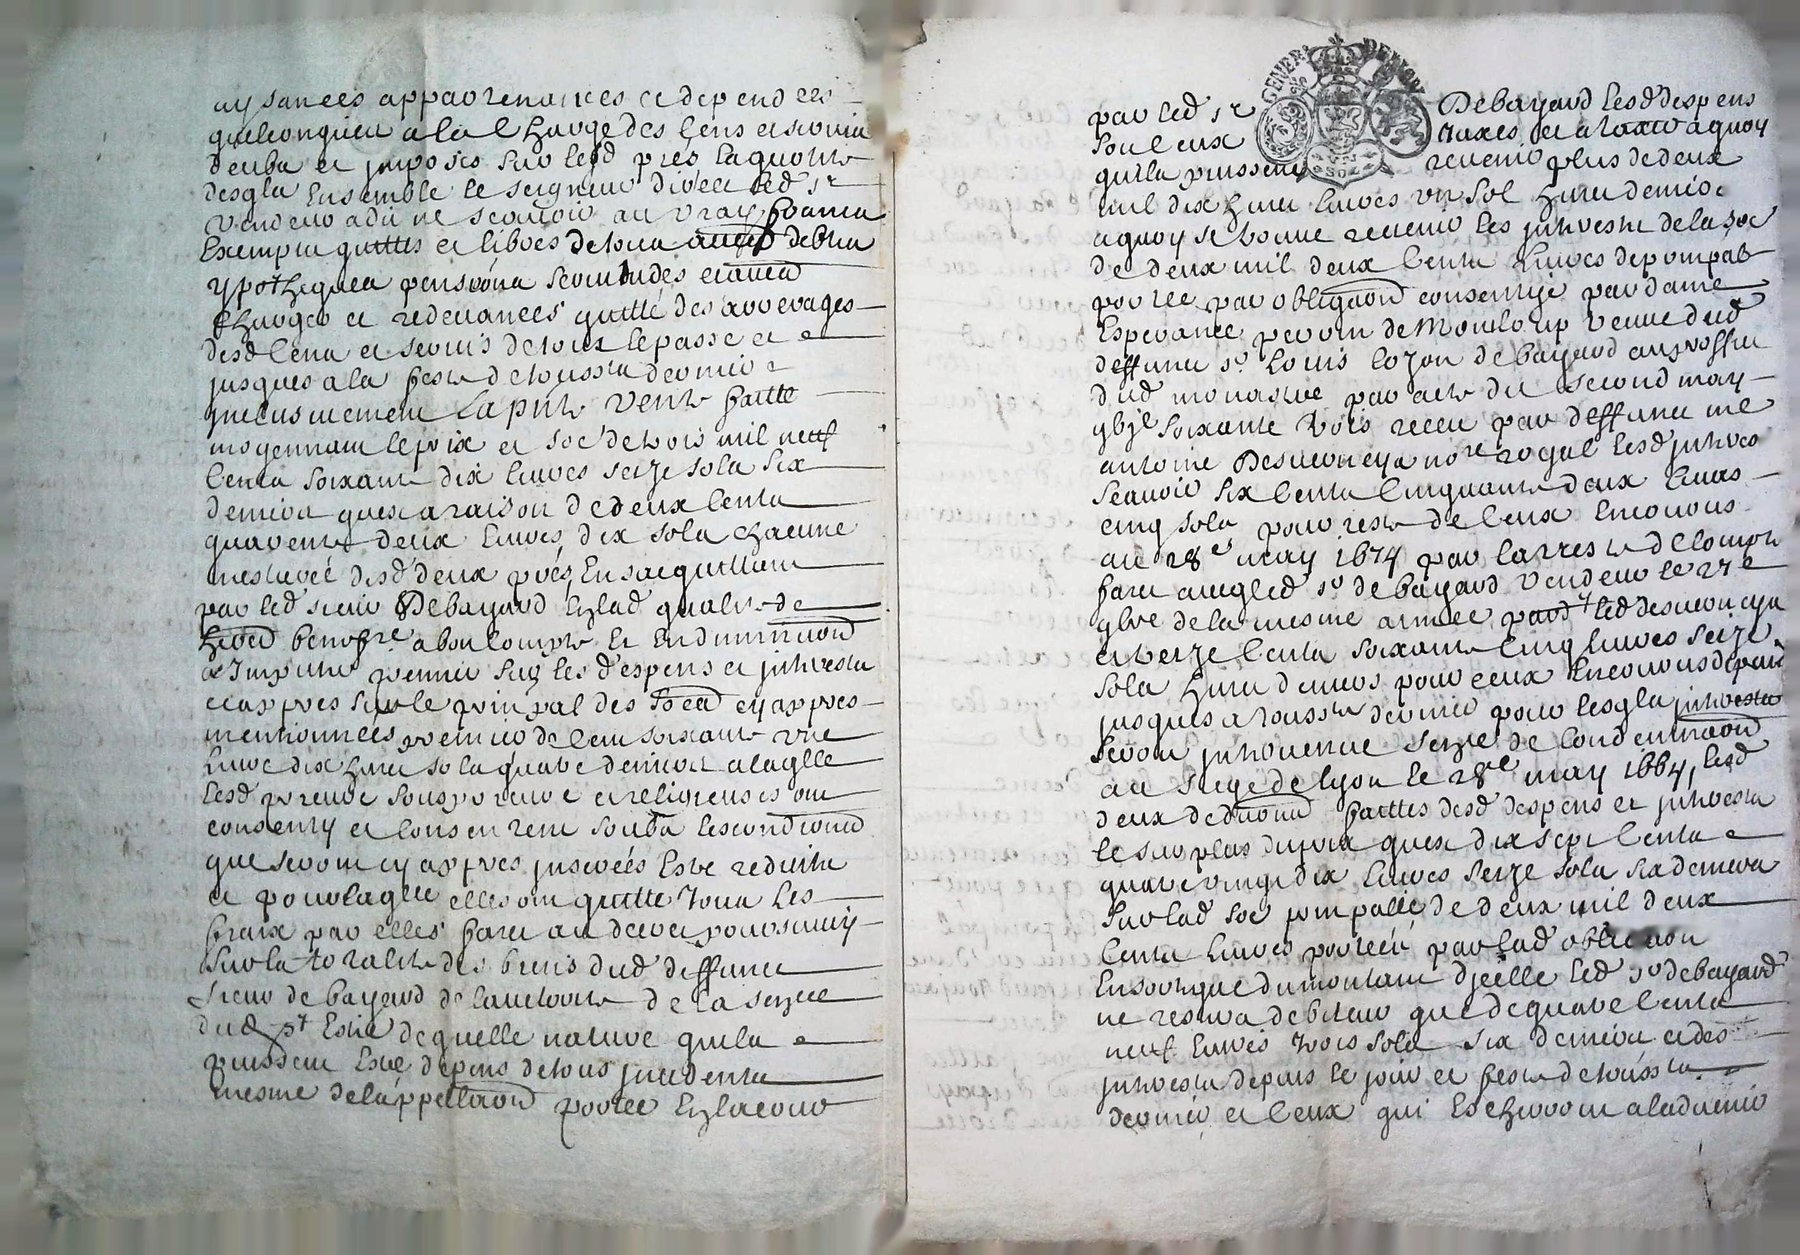 aysances appartenances et dependces
quelconques a la charge des cens et servis
deubs et imposés sur lesd prés la quotité
desqls ensemble le seigneur direct led sr
vendeur a dit ne scavoir au vray francs
exempts quittes et libres de tous debtes
ypotheques pensions servitudes et
charges et redevances quitte des arrerages
desd cens et servis de tout le passé et
jusques a la feste de toussts dernier
inclusivement la pnte vente faitte
moyennant le prix et soe de trois mil neuf
cents soixante dix livres seize sols six
deniers ques a raison de deux cents
quarente deux livres dix sols chacune
mesurée desd deux prés en sacquittant
par led sieur Debayard en lad qualité de
benefre. a bon compte et en diminuaon
et imputer premier sur les despens et interests
et aprés sur le prinpal des soes cy aprés
mentionnées premier de cent soixante une
livre dix huit sols quatre deniers a laqlle
lesd prieure sousprieure et religieuses ont
consenty et consentent soubs les condiones
que seront cy aprés inserées estre reduitte
et pour laqlle elles ont quitté tous les
fraix par elles faits au decret poursuivy
sur la totalité des biens dud deffunct
sieur de bayard de lauthorité de la senee
dud pt estre de quelle nature quils
puissent estre depens de tous incidents
mesme de lappellaon portée en la cour
par led sr Debayard lesd despens
soulcux taxes et a taxer a quoy
quils puissent revenir plus de deux
mil dix huit livres un sol huit deniers
a quoy se treuve revenir les interests de la soe
de deux mil deux cents livres de prinpal
portée par obligaon consentye par dame
Esperance perrin de Montloup veuve dud
deffunct sr. Louis lozon de bayard au proffit
dud monastre par acte du second may
gbjc soixante trois receu par deffunct me
antoine Desverneys nore royal lesd interests
scavoir six cents cinquante deux livres
cinq sols pour reste de ceux encourus
au 28e may 1674 par larresté de compte
fait avec led sr. de bayard vendeur le 27e
qbre de la mesme année pardt led desverneys
et treize cents soixante cinq livres seize
sols huit deniers pour ceux encourus depuis
jusques a toussts dernier pour lesqls interests
seroit intervenue senze de condemnaon
au siege de lyon le 28e may 1664, lesd
deux deduons faittes desd despens et interests
le surplus du prix ques dix sept cents
quatre vingt dix livres seize sols six deniers
sur lad soe prinpalle de deux mil deux
cents livres portée par lad obligaon
Ensorte que du montant dicelle led sr debayard
ne restera debiteur que de quatre cents
neuf livres trois sols six deniers et des
interests depuis le jour et feste de toussts
dernier et ceux qui escherront a ladvenir
GENER DE LYON
SOLZ